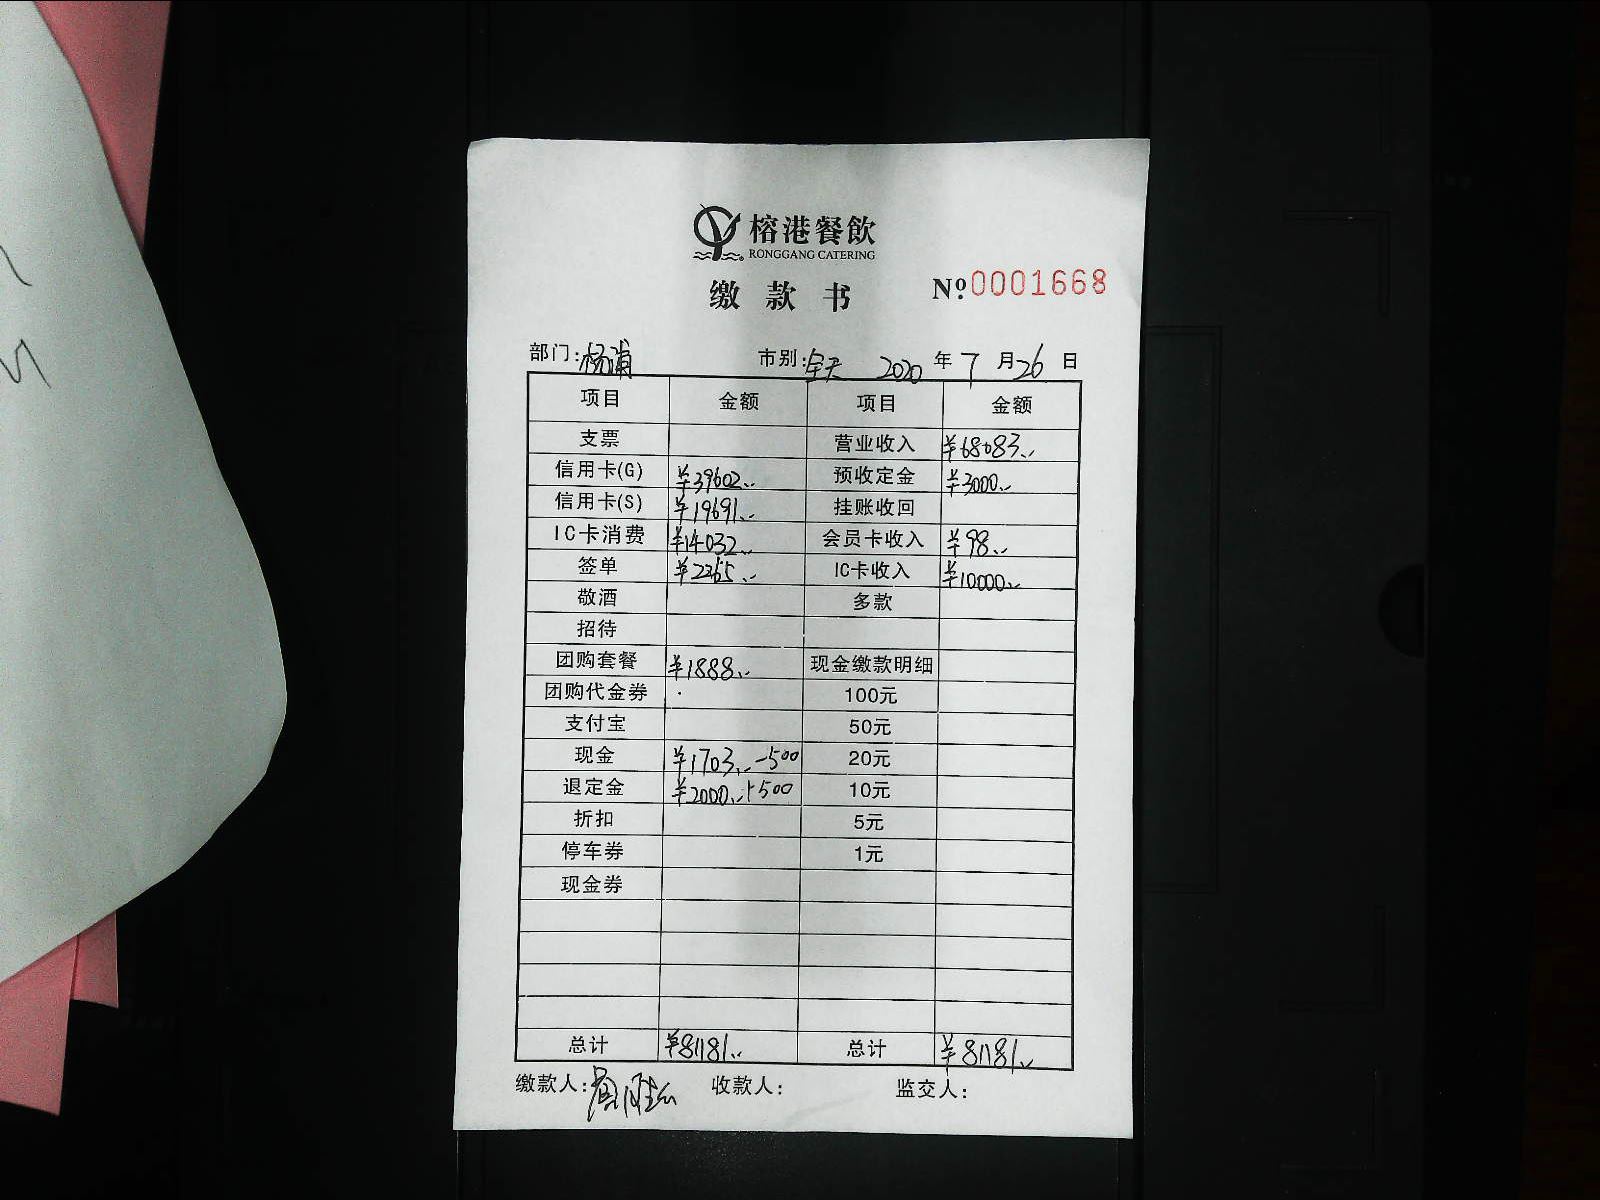 榕港餐飲
RONGGANG CATERING
缴款书 Nº.0001668
部门:杨浦 市别:全天 2020 年 7 月 26 日
项目 金额 项目 金额
支票 营业收入 ¥68083
信用卡(G) ¥39602 预收定金 ¥3000
信用卡(S) ¥19691 挂账收回
IC卡消费 ¥14032 会员卡收入 ¥98
签单 ¥2265 IC卡收入 ¥10000
敬酒 多款
招待
团购套餐 ¥1888 现金缴款明细
团购代金券 100元
支付宝 50元
现金 ¥1703 -500 20元
退定金 ¥2000 +500 10元
折扣 5元
停车券 1元
现金券
总计 ¥81181 总计 ¥81181
缴款人: 收款人: 监交人: